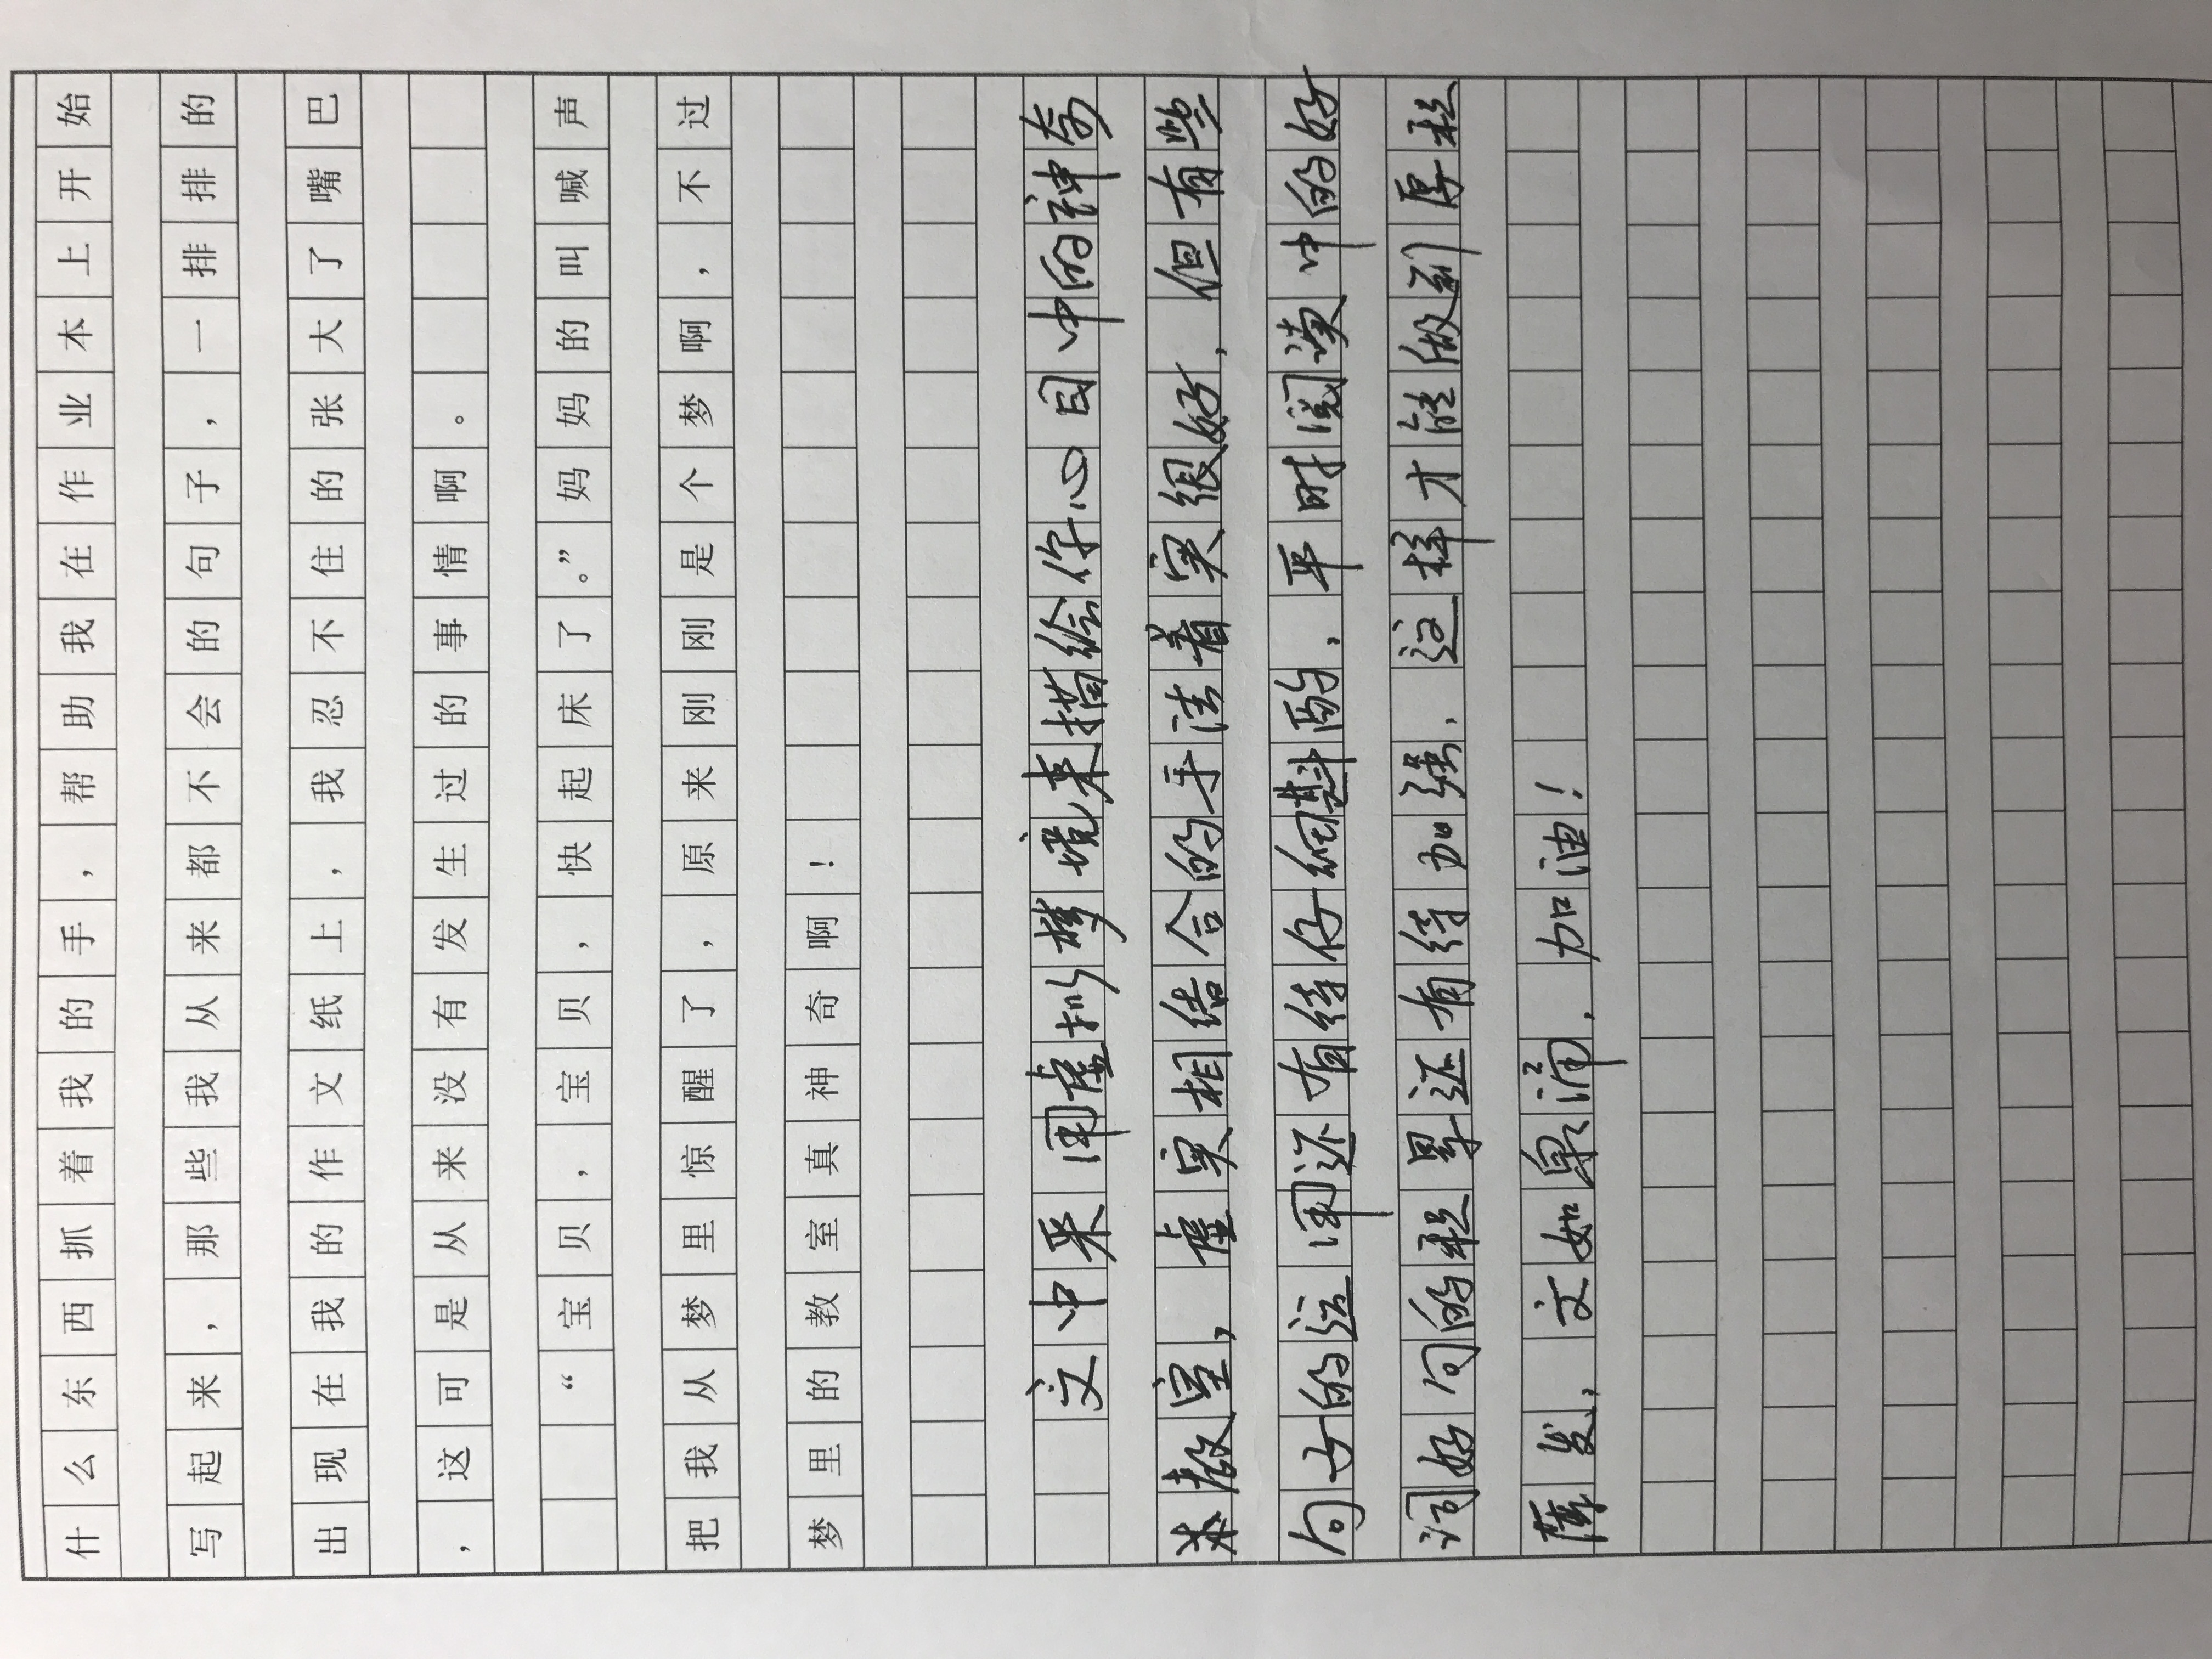 什么东西抓着我的手，帮助我在作业本上开始
写起来，那些我从来都不会的句子，一排排的
出现在我的作文纸上，我忍不住的张大了嘴巴
，这可是从来没有发生过的事情啊。
“宝贝，宝贝，快起床了。”妈妈的叫喊声
把我从梦里惊醒了，原来刚刚是个梦啊，不过
梦里的教室真神奇啊！
文中采用虚拟梦境来描绘你心目中的神奇
教室，虚实相结合的手法着实很好，但有些
句子的运用还有待仔细斟酌，平时阅读中的好
词好句的积累还有待加强，这样才能做到厚积
薄发，文如泉涌，加油！